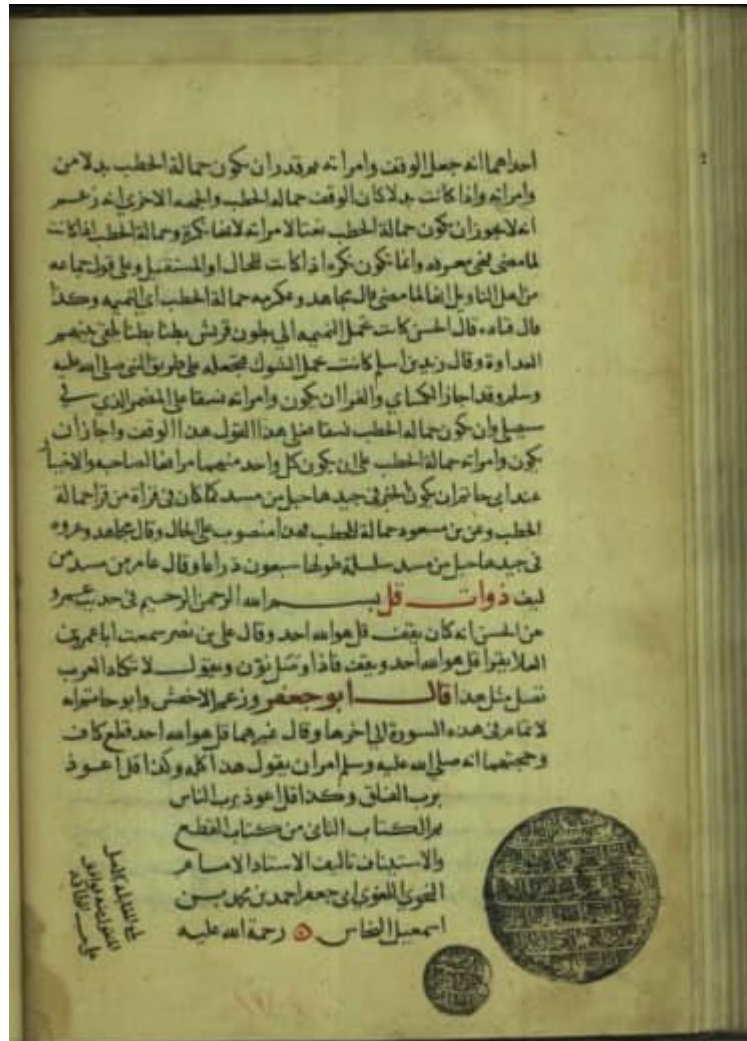 احداهما انه جعل الوقف وامراته ثم قدر ان يكون حمالة الحطب بدلا من
وامراته واذا كانت بدلا كان الوقف حماله الحطب والجهه الاخرى انه زعم
انه لا يجوز ان يكون حمالة الحطب نعتا لامراته لانها نكرة وحمالة الحطب اذا كانت
لما مضى فهى معرفه وانما يكون نكره اذا كانت للحال او المستقبل وعلى قول جماعه
من اهل التاويل انها لما مضى قال مجاهد وعكرمه حمالة الحطب اى النميمه وكذا
قال قتاده قال الحسن كانت تحمل النميمه الى بطون قريش بطنا بطنا لتلقى بينهم
العداوة وقال زيد بن اسلم كانت تحمل الشوك فتجعله على طريق النبى صلى الله عليه
وسلم وقد اجاز الكساي والفرا ان يكون وامراته نسقا على المضمر الذي في
سيصلى وان يكون حماله الحطب نسقا فعلى هذا القول هذا الوقف واجاز ان
يكون وامراته حمالة الحطب على ان يكون كل واحد منهما مرافعا لصاحبه والاختيار
عند ابى حاتم ان يكون الخبر فى جيدها حبل من مسد كما كان فى قراة من قرا حمالة
الحطب وعن بن مسعود حمالة للحطب فهذا منصوب على الحال وقال مجاهد وعروه
فى جيدها حبل من مسد سلسلة طولها سبعون ذراعا وقال عامر من مسد من
ليف ذوات قل بسم الله الرحمن الرحيم فى حديث عمرو
عن الحسن انه كان يقف قل هو الله احد وقال على بن نصر سمعت ابا عمرو بن
العلا يقرا قل هو الله احد ويقف فاذا وصل نون ويقول لا تكاد العرب
تصل مثل هذا قال ابو جعفر وزعم الاخفش وابو حاتم انه
لا تمام فى هذه السورة الى اخرها وقال غيرهما قل هو الله احد قطع كاف
وحجتهما انه صلى الله عليه وسلم امر ان يقول هذا كله وكذا قل اعوذ
برب الفلق وكذا قل اعوذ برب الناس
تم الكتاب الثانى من كتاب القطع
والاستيناف تاليف الاستاد الامام
النحوى اللغوى ابى جعفر احمد بن محمد بن
اسمعيل النحاس رحمة الله عليه
على حسب الطاقة